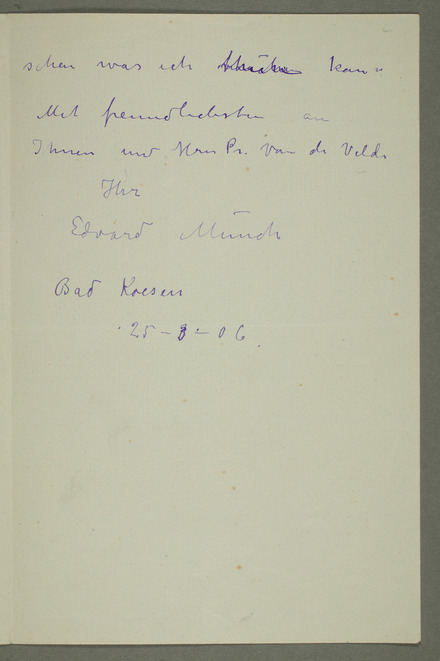 sehen was ich kann
Mit freundlichsten an
Ihnen und Hrn Pr. Van de Velde
Ihr
Edvard Munch
Bad Koesen
25–3–06.